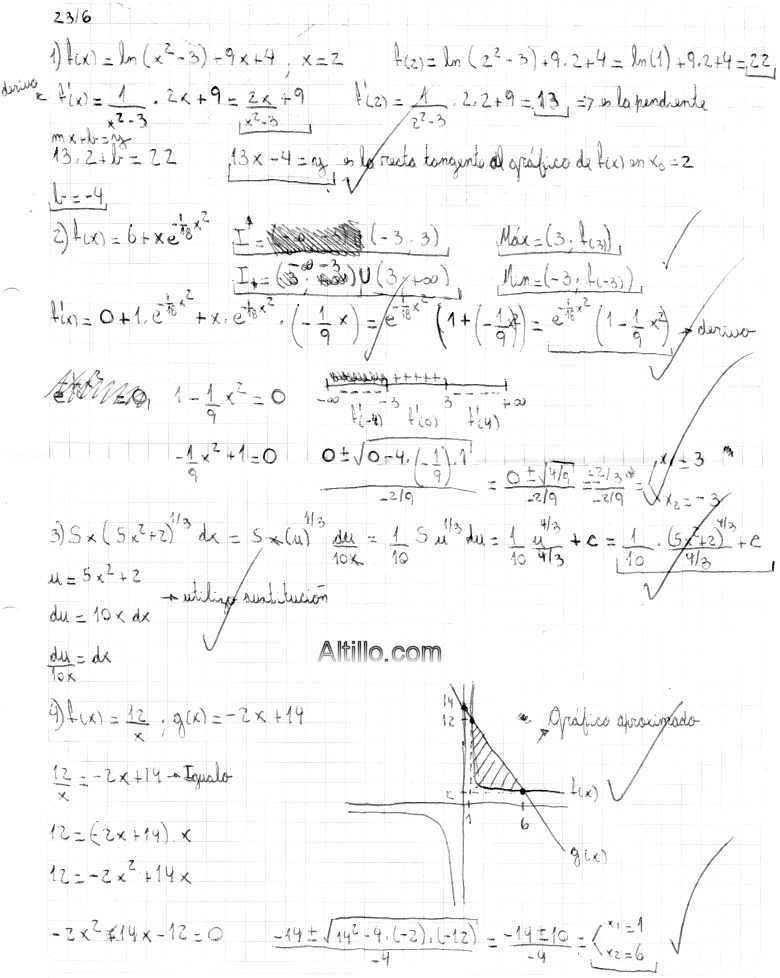 23/6
1) f(x) = ln (x² - 3) + 9x + 4 ; x = 2 f(2) = ln (2² - 3) + 9.2 + 4 = ln(1) + 9.2 + 4 = 22
derivo f'(x) = 1/(x² - 3) . 2x + 9 = 2x/(x² - 3) + 9 f'(2) = 1/(2² - 3) . 2.2 + 9 = 13 => es la pendiente
mx + b = y
13.2 + b = 22 13x - 4 = y es la recta tangente al gráfico de f(x) en x₀ = 2
b = -4
2) f(x) = 6 + x e^(-1/18 x²) I↑ = (-3; 3) Máx = (3; f(3))
I↓ = (-∞; -3) U (3; +∞) Mín = (-3; f(-3))
f'(x) = 0 + 1. e^(-1/18 x²) + x. e^(-1/18 x²) . (-1/9 x) = e^(-1/18 x²) (1 + (-1/9 x²)) = e^(-1/18 x²) (1 - 1/9 x²) → derivo
1 - 1/9 x² = 0 ---- +++++ ----
-∞ -3 3 +∞
f'(-4) f'(0) f'(4)
-1/9 x² + 1 = 0 (0 ± √(0 - 4. (-1/9) . 1))/(-2/9) = (0 ± √(4/9))/(-2/9) = (±2/3)/(-2/9) = x₁ = 3
x₂ = -3
3) ∫ x (5x² + 2)^(1/3) dx = ∫ x (u)^(1/3) du/10x = 1/10 ∫ u^(1/3) du = 1/10 u^(4/3)/(4/3) + c = 1/10 . (5x² + 2)^(4/3)/(4/3) + c
u = 5x² + 2
→ utilizo sustitución
du = 10x dx
du/10x = dx
Altillo.com
4) f(x) = 12/x ; g(x) = -2x + 14
14
12
Gráfico aproximado
12/x = -2x + 14 → Igualo
2
f(x)
1 6
g(x)
12 = (-2x + 14) . x
12 = -2x² + 14x
-2x² + 14x - 12 = 0 (-14 ± √(14² - 4.(-2).(-12)))/(-4) = (-14 ± 10)/(-4) = x₁ = 1
x₂ = 6